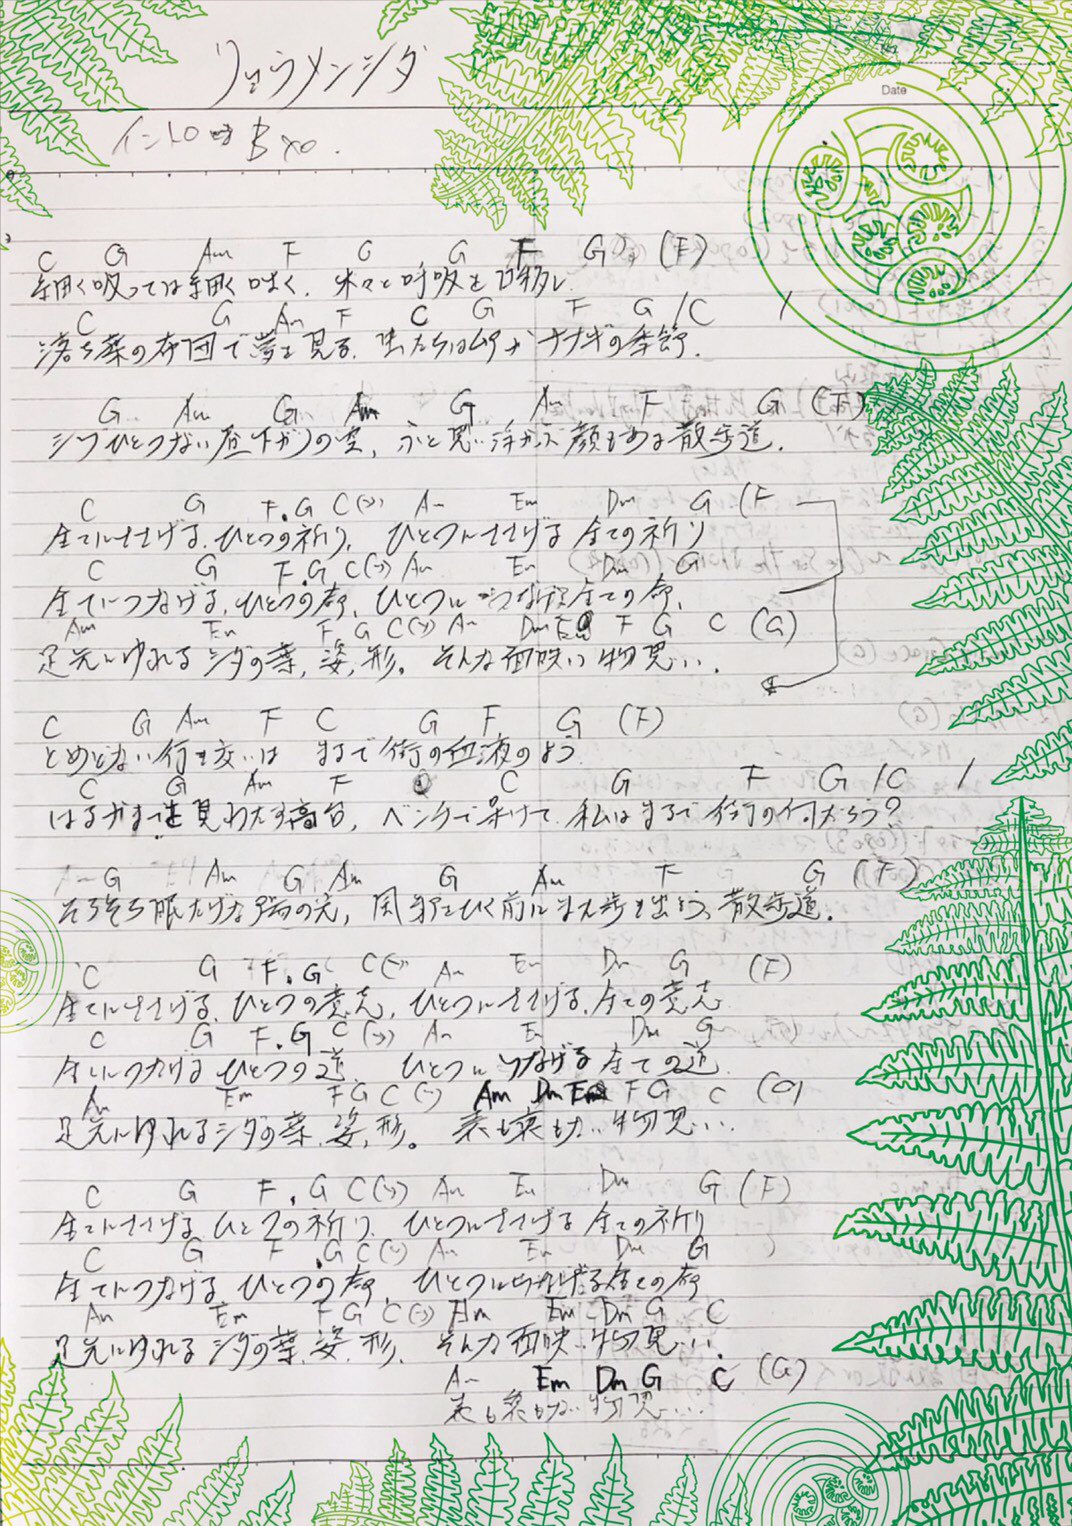 リョウメンシダ
Date
イントロ
C G Am F G G F G (F)
細く吸っては細く吐く、木々と呼吸を
C G Am F C G F G /C /
落ち葉の布団で夢を見る、ムラサキの季節、
G Am G Am G Am F G (F)
シワひとつない昼下がりの空、ふと思い浮かぶ顔もある散歩道。
C G F.G C Am Em Dm G (F
全てにささげる、ひとつの祈り、ひとつにささげる全ての祈り
C G F.G C Am Em Dm G
全てにつなげる、ひとつの命、ひとつにつなげる全ての命、
Am Em F G C Am Dm Em F G C (G)
足元にゆれるシダの葉、姿、形。そんな面映い物思い、
C G Am F C G F G (F)
とめどない行き交いは まるで街の血液のよう
C G Am F C G F G /C /
はるか 見わたす高台、ベンチで呆けて、私はまるで街の何だろう?
G Am G Am G Am F G (F)
そろそろ眠たげな陽の光、また歩き出そう、散歩道。
C G F.G C Am Em Dm G (F)
全てにささげる、ひとつの意志、ひとつにささげる、全ての意志
C G F.G C Am Em Dm G
全てにつなげる ひとつの道 ひとつにつなげる全ての道
Am Em F G C Am Dm Em F G C (G)
足元にゆれるシダの葉、姿、形。 表も裏もない物思い...
C G F.G C Am Em Dm G (F)
全てにささげる、ひとつの祈り、ひとつにささげる 全ての祈り
C G F.G C Am Em Dm G
全てにつなげる、ひとつの命、ひとつにつなげる全ての命
Am Em F G C Am Em Dm G C
足元にゆれるシダの葉、姿、形、 そんな面映い物思い...
Am Em Dm G C (G)
表も裏もない物思い....